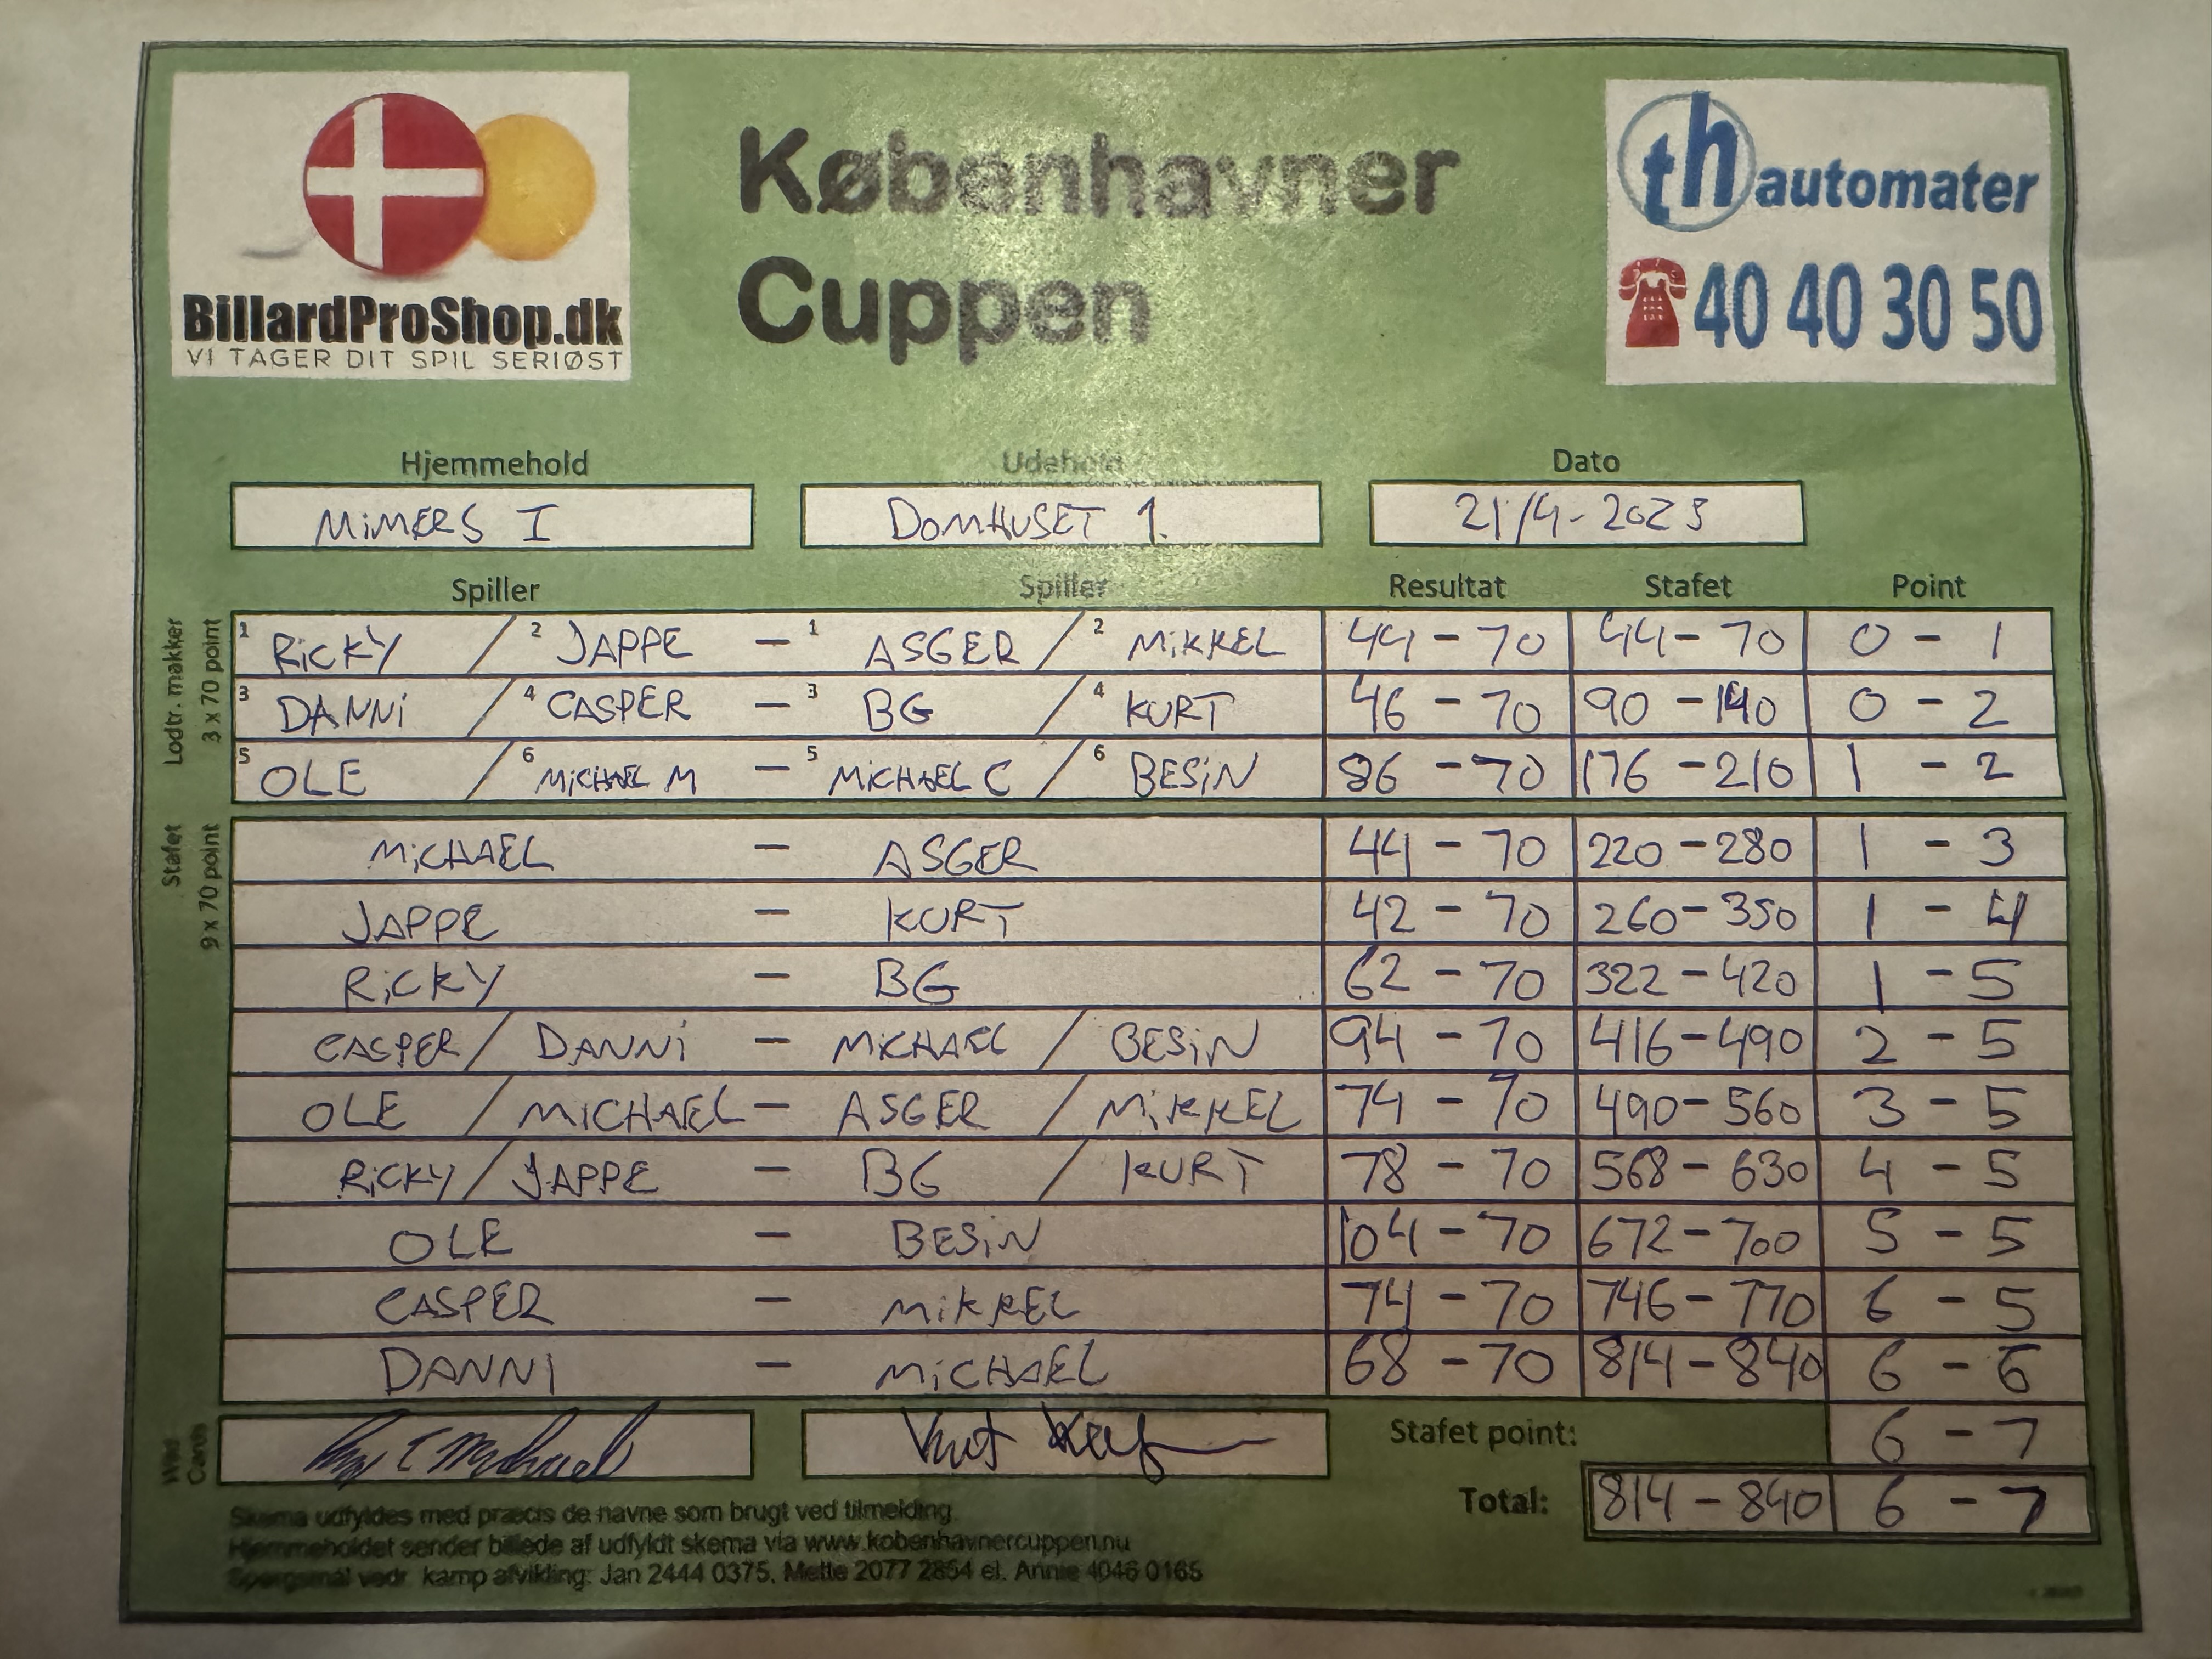 Københavner
Cuppen
BillardProShop.dk
VI TAGER DIT SPIL SERIØST
th automater
40 40 30 50
Hjemmehold Udehold Dato
MIMERS I DOMHUSET 1. 21/4-2023
Spiller Spiller Resultat Stafet Point
Lodtr. makker
3 x 70 point
1 RICKY / 2 JAPPE - 1 ASGER / 2 MIKKEL 44 - 70 44 - 70 0 - 1
3 DANNI / 4 CASPER - 3 BG / 4 KURT 46 - 70 90 - 140 0 - 2
5 OLE / 6 MICHAEL M - 5 MICHAEL C / 6 BESIN 86 - 70 176 - 210 1 - 2
Stafet
9 x 70 point
MICHAEL - ASGER 44 - 70 220 - 280 1 - 3
JAPPE - KURT 42 - 70 260 - 350 1 - 4
RICKY - BG 62 - 70 322 - 420 1 - 5
CASPER / DANNI - MICHAEL / BESIN 94 - 70 416 - 490 2 - 5
OLE / MICHAEL - ASGER / MIKKEL 74 - 70 490 - 560 3 - 5
RICKY / JAPPE - BG / KURT 78 - 70 568 - 630 4 - 5
OLE - BESIN 104 - 70 672 - 700 5 - 5
CASPER - MIKKEL 74 - 70 746 - 770 6 - 5
DANNI - MICHAEL 68 - 70 814 - 840 6 - 6
Wild
Cards
Stafet point: 6 - 7
Total: 814 - 840 6 - 7
Skema udfyldes med præcis de navne som brugt ved tilmelding
Hjemmeholdet sender billede af udfyldt skema via www.kobenhavnercuppen.nu
Spørgsmål vedr. kamp afvikling: Jan 2444 0375, Mette 2077 2854 el. Annie 4046 0165